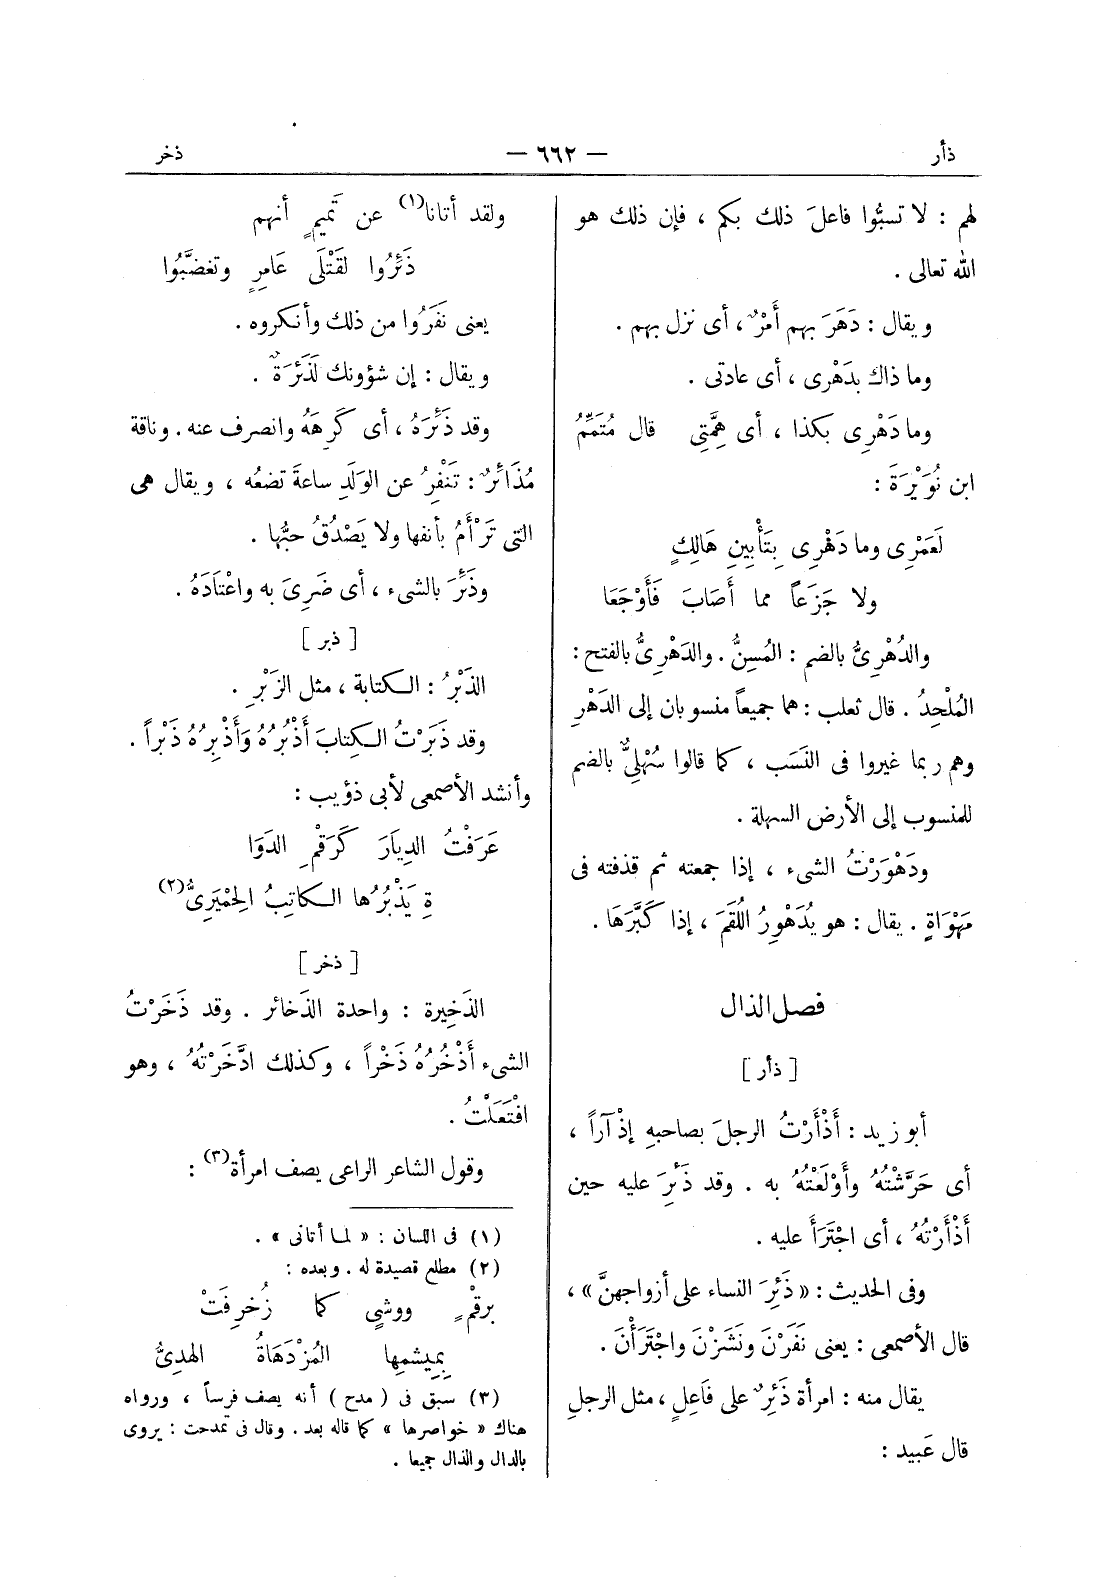 ذأر — ٦٦٢ — ذخر
لهم : لا تسبُّوا فاعلَ ذلك بكم ، فإن ذلك هو
الله تعالى .
ويقال : دَهَرَ بهم أَمْرٌ ، أى نزل بهم .
وما ذاك بدَهْرِى ، أى عادتى .
وما دَهْرِى بكذا ، أى هِمَّتِى قال مُتَمِّمُ
ابن نُوَيْرَةَ :
لَعَمْرِى وما دَهْرِى بِتَأْبِينِ هَالِكٍ
ولا جَزَعاً مما أَصَابَ فَأَوْجَعَا
والدُهْرِىُّ بالضم : المُسِنُّ . والدَهْرِىُّ بالفتح :
المُلْحِدُ . قال ثعلب : هما جميعاً منسوبان إلى الدَهْرِ
وهم ربما غيروا فى النَسَب ، كما قالوا سُهْلِىٌّ بالضم
للمنسوب إلى الأرض السهلة .
ودَهْوَرْتُ الشىء ، إذا جمعته ثم قذفته فى
مَهْوَاةٍ . يقال : هو يُدَهْوِرُ اللُقَمَ ، إذا كَبَّرَهَا .
فصل الذال
[ ذأر ]
أبو زيد : أَذْأَرْتُ الرجلَ بصاحبهِ إذْآراً ،
أى حَرَّشْتُهُ وأَوْلَعْتُهُ به . وقد ذَئِرَ عليه حين
أَذْأَرْتُهُ ، أى اجْتَرَأَ عليه .
وفى الحديث : « ذَئِرَ النساء على أزواجهنَّ » ،
قال الأصمعى : يعنى نَفَرْنَ ونَشَزْنَ واجْتَرَأْنَ .
يقال منه : امرأة ذَئِرٌ على فَاعِلٍ ، مثل الرجلِ
قال عَبيد :
ولقد أتانا(١) عن تَمِيمٍ أنهم
ذَئِرُوا لقَتْلَى عَامِرٍ وتغضَّبُوا
يعنى نَفَرُوا من ذلك وأنكروه .
ويقال : إن شؤونك لَذَئِرَةٌ .
وقد ذَئِرَهُ ، أى كَرِهَهُ وانصرف عنه . وناقة
مُذَائِرٌ : تَنْفِرُ عن الوَلَدِ ساعةَ تضعُه ، ويقال هى
التى تَرْأَمُ بأنفها ولا يَصْدُقُ حبُّها .
وذَئِرَ بالشىء ، أى ضَرِىَ به واعْتَادَهُ .
[ ذبر ]
الذَبْرُ : الكتابة ، مثل الزَبْرِ .
وقد ذَبَرْتُ الكِتابَ أَذْبُرُهُ وَأَذْبِرُهُ ذَبْراً .
وأنشد الأصمعى لأبى ذؤيب :
عَرَفْتُ الدِيَارَ كَرَقْمِ الدَوَا
ةِ يَذْبُرُها الكاتِبُ الحِمْيَرِىُّ(٢)
[ ذخر ]
الذَخِيرة : واحدة الذَخائر . وقد ذَخَرْتُ
الشىء أَذْخُرُهُ ذَخْراً ، وكذلك ادَّخَرْتُهُ ، وهو
افْتَعَلْتُ .
وقول الشاعر الراعى يصف امرأة(٣) :
(١) فى اللسان : « لما أتانى » .
(٢) مطلع قصيدة له . وبعده :
برقْمٍ ووشىٍ كما زُخرِفَتْ
بِمِيشمِها المُزْدَهَاةُ الهدِىُّ
(٣) سبق فى ( مدح ) أنه يصف فرساً ، ورواه
هناك « خواصرها » كما قاله بعد . وقال فى تمدحت : يروى
بالدال والذال جميعا .